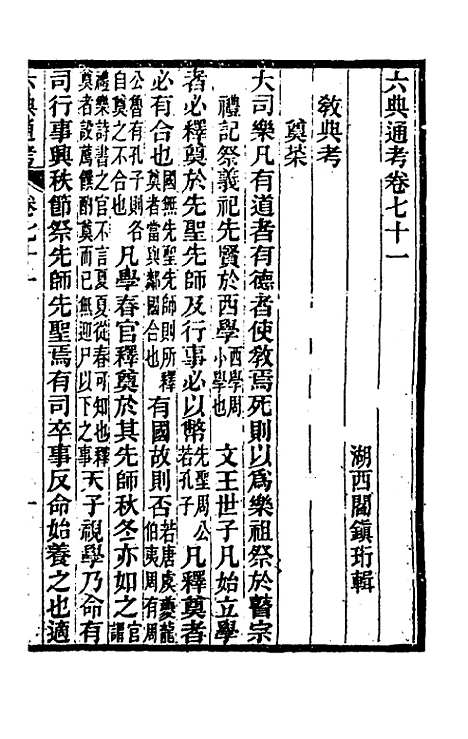 六典通考卷七十一
湖西閻鎮珩輯
敎典考
奠菜
大司樂凡有道者有德者使敎焉死則以爲樂祖祭於瞽宗
禮記祭義祀先賢於西學西學周小學也 文王世子凡始立學
者必釋奠於先聖先師及行事必以幣先聖周公若孔子 凡釋奠者
必有合也國無先聖先師則所釋奠者當與鄰國合也 有國故則否若唐虞夔龍伯夷周有周
公魯有孔子則各自奠之不合也 凡學春官釋奠於其先師秋冬亦如之謂官
禮樂詩書之官不言夏夏從春可知也釋奠者設薦饌酌奠而已無迎尸以下之事 天子視學乃命有
司行事興秩節祭先師先聖焉有司卒事反命始養之也適
六典通考
卷七十一
一